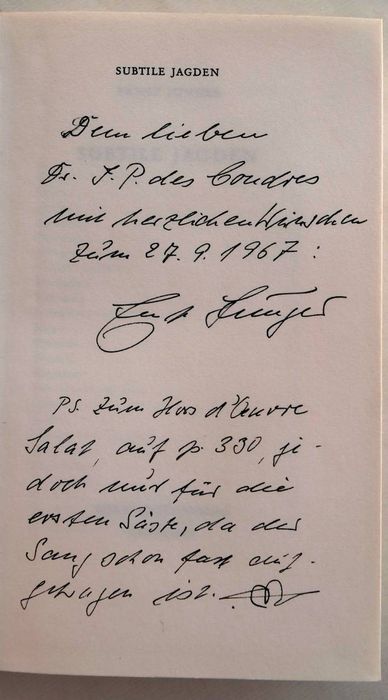 SUBTILE JAGDEN
Dem lieben
Dr. J. P. des Coudres
mit herzlichen Wünschen
zum 27. 9. 1967 :
Ernst Jünger
PS. Zum Hors d'Œuvre
Salat, auf p. 330, je-
doch nur für die
ersten Gäste, da der
schon fast auf-
getragen ist.